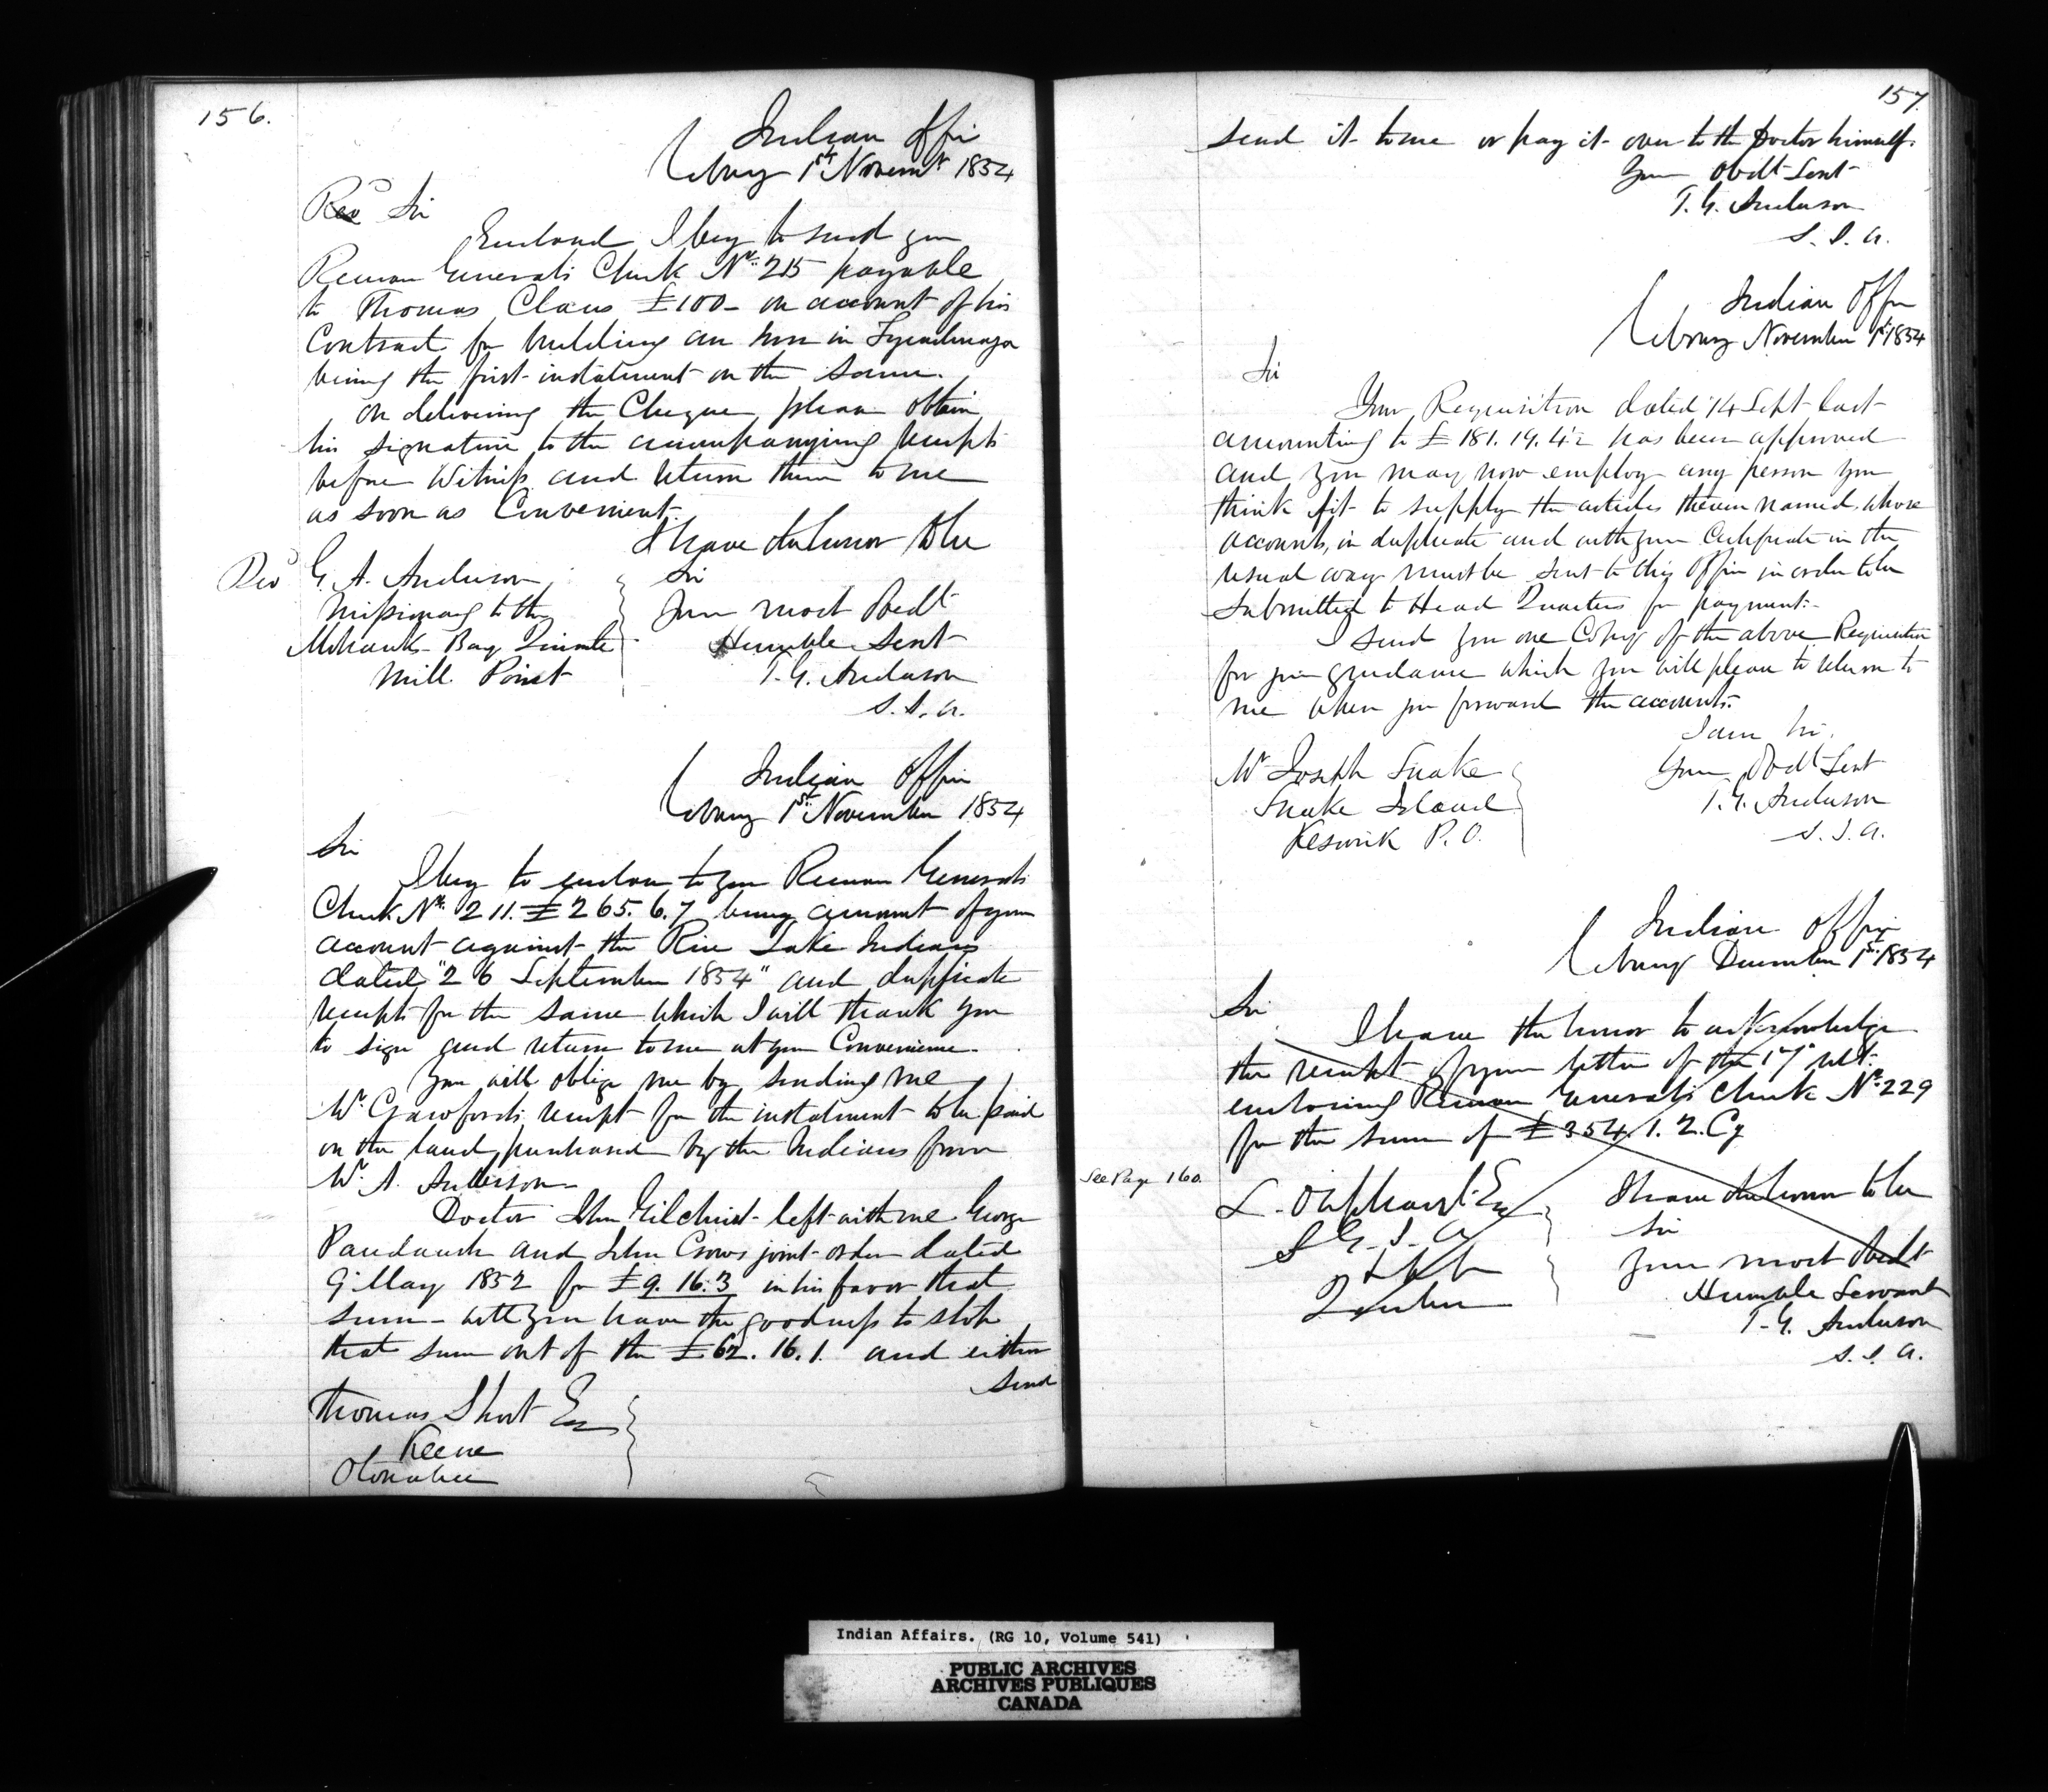 156.
Indian Office
Cobourg 1st Novemr 1854
Revd Sir
Enclosed I beg to send you
Receiver Generals Check No. 215 payable
to Thomas Claus £100 - on account of his
Contract for building an house in Tyendinaga
being the first instalment on the same.
On delivering the Cheque, please obtain
his signature to the accompanying receipts
before Witness and return them to me
as soon as Convenient.
I have the honor to be
Sir
Your most Obedt
Humble Servt
T. G. Anderson
S. I. A.
Revd G. A. Anderson
Missionary to the
Mohawks Bay Quinte
Mill Point
Indian Office
Cobourg 1st November 1854
Sir
I beg to enclose to you Receiver Generals
Check No. 211. £265. 6. 7 being amount of your
account against the Rice Lake Indians
dated "26 September 1854" and duplicate
receipts for the same which I will thank you
to sign and return to me at your Convenience.
You will oblige me by sending me
Mr Crawfords receipt for the instalment to be paid
on the land purchased by the Indians from
Mr A. Anderson -
Doctor John Gilchrist left with me George
Paudaush and John Crows joint order dated
9 May 1852 for £9. 16. 3 in his favor that
sum - will you have the goodness to stop
that sum out of the £62. 16. 1. and either
send
Thomas Short Esq
Keene
Otonabee
157
send it to me or pay it over to the Doctor himself.
Your Obdt Servt
T. G. Anderson
S. I. A.
Indian Office
Cobourg November 1st 1854
Sir
Your Requisition dated 14 Sept last
amounting to £181. 19. 4½ has been approved
and you may now employ any person you
think fit to supply the articles therein named, whose
accounts, in duplicate and with your Certificate in the
usual way must be sent to this Office in order to be
Submitted to Head Quarters for payment.
I send you one Copy of the above Requisition
for your guidance which you will please to return to
me when you forward the accounts.
I am Sir.
Your Obdt Servt
T. G. Anderson
S. I. A.
Mr Joseph Snake
Snake Island
Keswick P. O.
Indian Office
Cobourg December 1st 1854
Sir
I have the honor to acknowledge
the receipt of your letter of the 17 ult.
enclosing Receiver Generals Check No. 229
for the sum of £354. 1. 2. Cy
See Page 160.
I have the honor to be
Sir
Your most Obedt
Humble Servant
T. G. Anderson
S. I. A.
L. Oliphant Esq
S G. I. A
Quebec
Indian Affairs. (RG 10, Volume 541)
PUBLIC ARCHIVES
ARCHIVES PUBLIQUES
CANADA